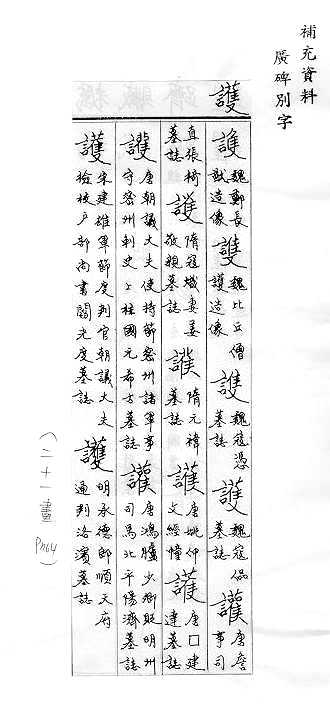 補充資料
廣碑別字
護
魏鄭長
猷造像
護
魏比丘僧
護造像
護
魏寇憑
墓誌
護
魏寇侃
墓誌
護
唐詹
事司
直張椅
墓誌
護
隋寇熾妻姜
敬親墓誌
護
隋元禕
墓誌
護
唐姚仲
文經幢
護
唐□建
達墓誌
護
唐朝議大夫使持節密州諸軍事
守密州刺史上柱國元希古墓誌
護
唐鴻臚少卿貶明州
司馬北平陽濟墓誌
護
宋建雄軍節度判官朝議大夫
檢校戶部尚書閻光度墓誌
護
明永德郎順天府
通判洛濱墓誌
(二十一畫 P2164)